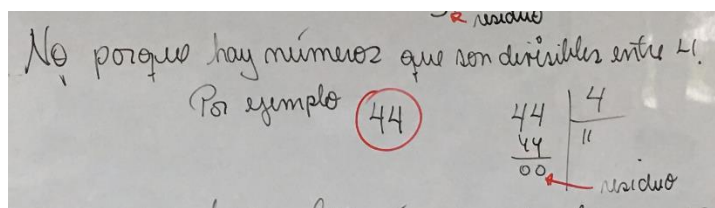 residuo
No porque hay números que son divisibles entre 4.
Por ejemplo 44
44 4
44 11
00
residuo